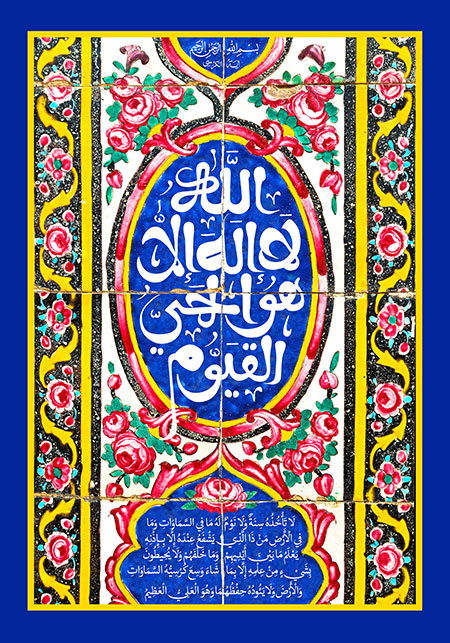 بِسْمِ اللهِ الرَّحْمٰنِ الرَّحِيمِ
آيةُ الكرسي
اللَّهُ
لَا إِلَهَ إِلَّا
هُوَ الْحَيُّ
الْقَيُّومُ
لَا تَأْخُذُهُ سِنَةٌ وَلَا نَوْمٌ لَهُ مَا فِي السَّمَاوَاتِ وَمَا
فِي الْأَرْضِ مَنْ ذَا الَّذِي يَشْفَعُ عِنْدَهُ إِلَّا بِإِذْنِهِ
يَعْلَمُ مَا بَيْنَ أَيْدِيهِمْ وَمَا خَلْفَهُمْ وَلَا يُحِيطُونَ
بِشَيْءٍ مِنْ عِلْمِهِ إِلَّا بِمَا شَاءَ وَسِعَ كُرْسِيُّهُ السَّمَاوَاتِ
وَالْأَرْضَ وَلَا يَئُودُهُ حِفْظُهُمَا وَهُوَ الْعَلِيُّ الْعَظِيمُ